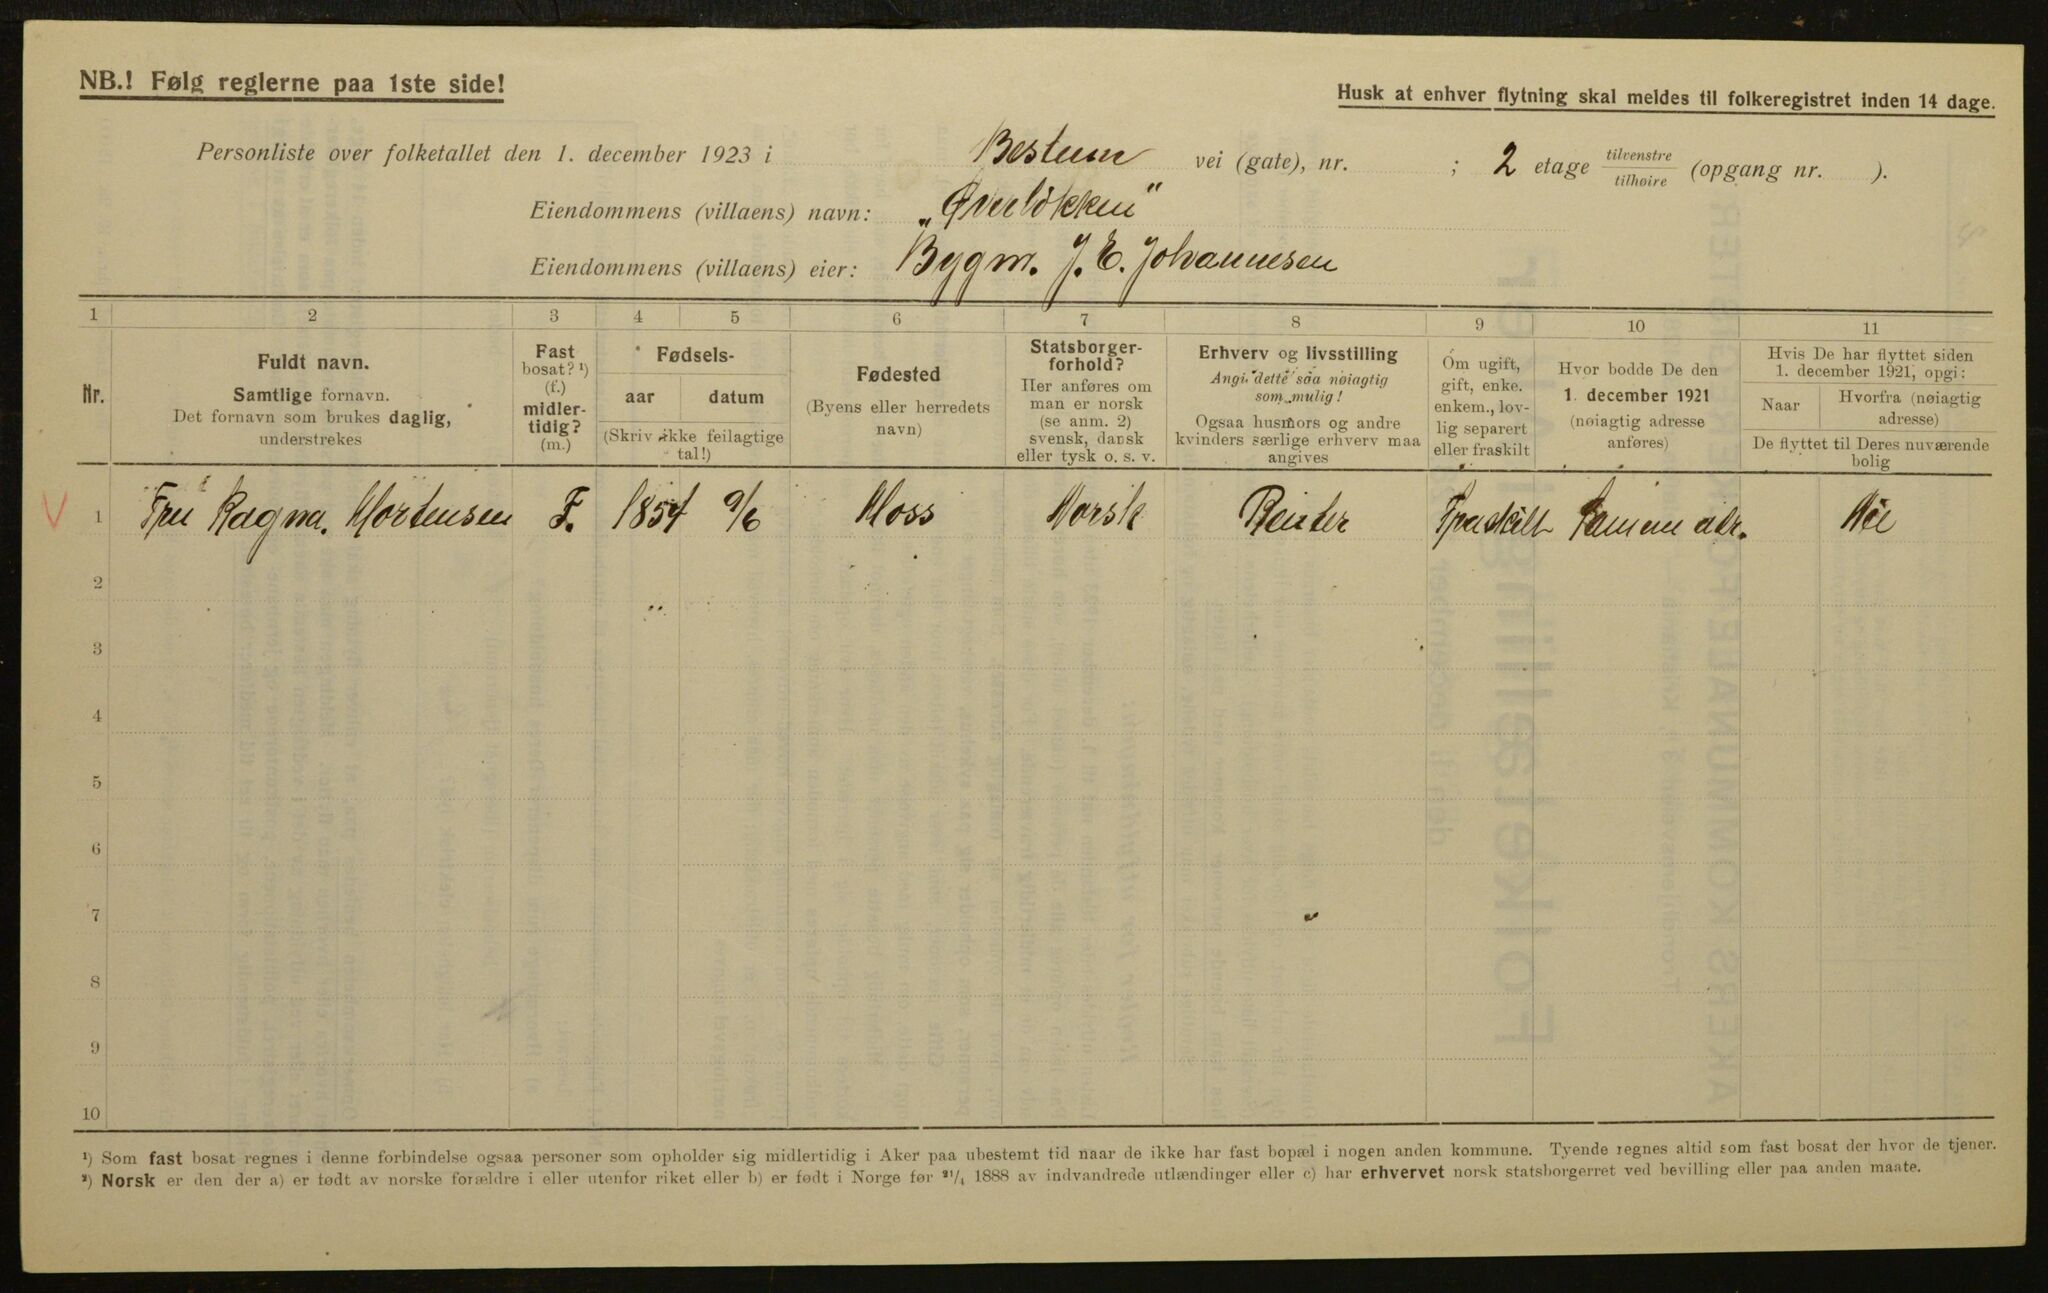 NB.! Følg reglerne paa 1ste side!
Husk at enhver flytning skal meldes til folkeregistret inden 14 dage.
Personliste over folketallet den 1. december 1923 i Bestum vei (gate), nr. ; 2 etage tilvenstre/tilhøire (opgang nr. ).
Eiendommens (villaens) navn: „Øverlökken"
Eiendommens (villaens) eier: Bygm. J. E. Johannesen
1 2 3 4 5 6 7 8 9 10 11
Nr.
Fuldt navn.
Samtlige fornavn.
Det fornavn som brukes daglig,
understrekes
Fast
bosat? ¹)
(f.)
midler-
tidig?
(m.)
Fødsels-
aar datum
(Skriv ikke feilagtige
tal!)
Fødested
(Byens eller herredets
navn)
Statsborger-
forhold?
Her anføres om
man er norsk
(se anm. 2)
svensk, dansk
eller tysk o. s. v.
Erhverv og livsstilling
Angi dette saa nøiagtig
som mulig!
Ogsaa husmors og andre
kvinders særlige erhverv maa
angives
Om ugift,
gift, enke.
enkem., lov-
lig separert
eller fraskilt
Hvor bodde De den
1. december 1921
(nøiagtig adresse
anføres)
Hvis De har flyttet siden
1. december 1921, opgi:
Naar
Hvorfra (nøiagtig
adresse)
De flyttet til Deres nuværende
bolig
V 1 Fru Ragna. Mortensen F. 1854 9/6 Moss Norsk Renter Fraskilt Samme adr.
2
3
4
5
6
7
8
9
10
¹) Som fast bosat regnes i denne forbindelse ogsaa personer som opholder sig midlertidig i Aker paa ubestemt tid naar de ikke har fast bopæl i nogen anden kommune. Tyende regnes altid som fast bosat der hvor de tjener.
²) Norsk er den der a) er født av norske forældre i eller utenfor riket eller b) er født i Norge før ²¹/₄ 1888 av indvandrede utlændinger eller c) har erhvervet norsk statsborgerret ved bevilling eller paa anden maate.